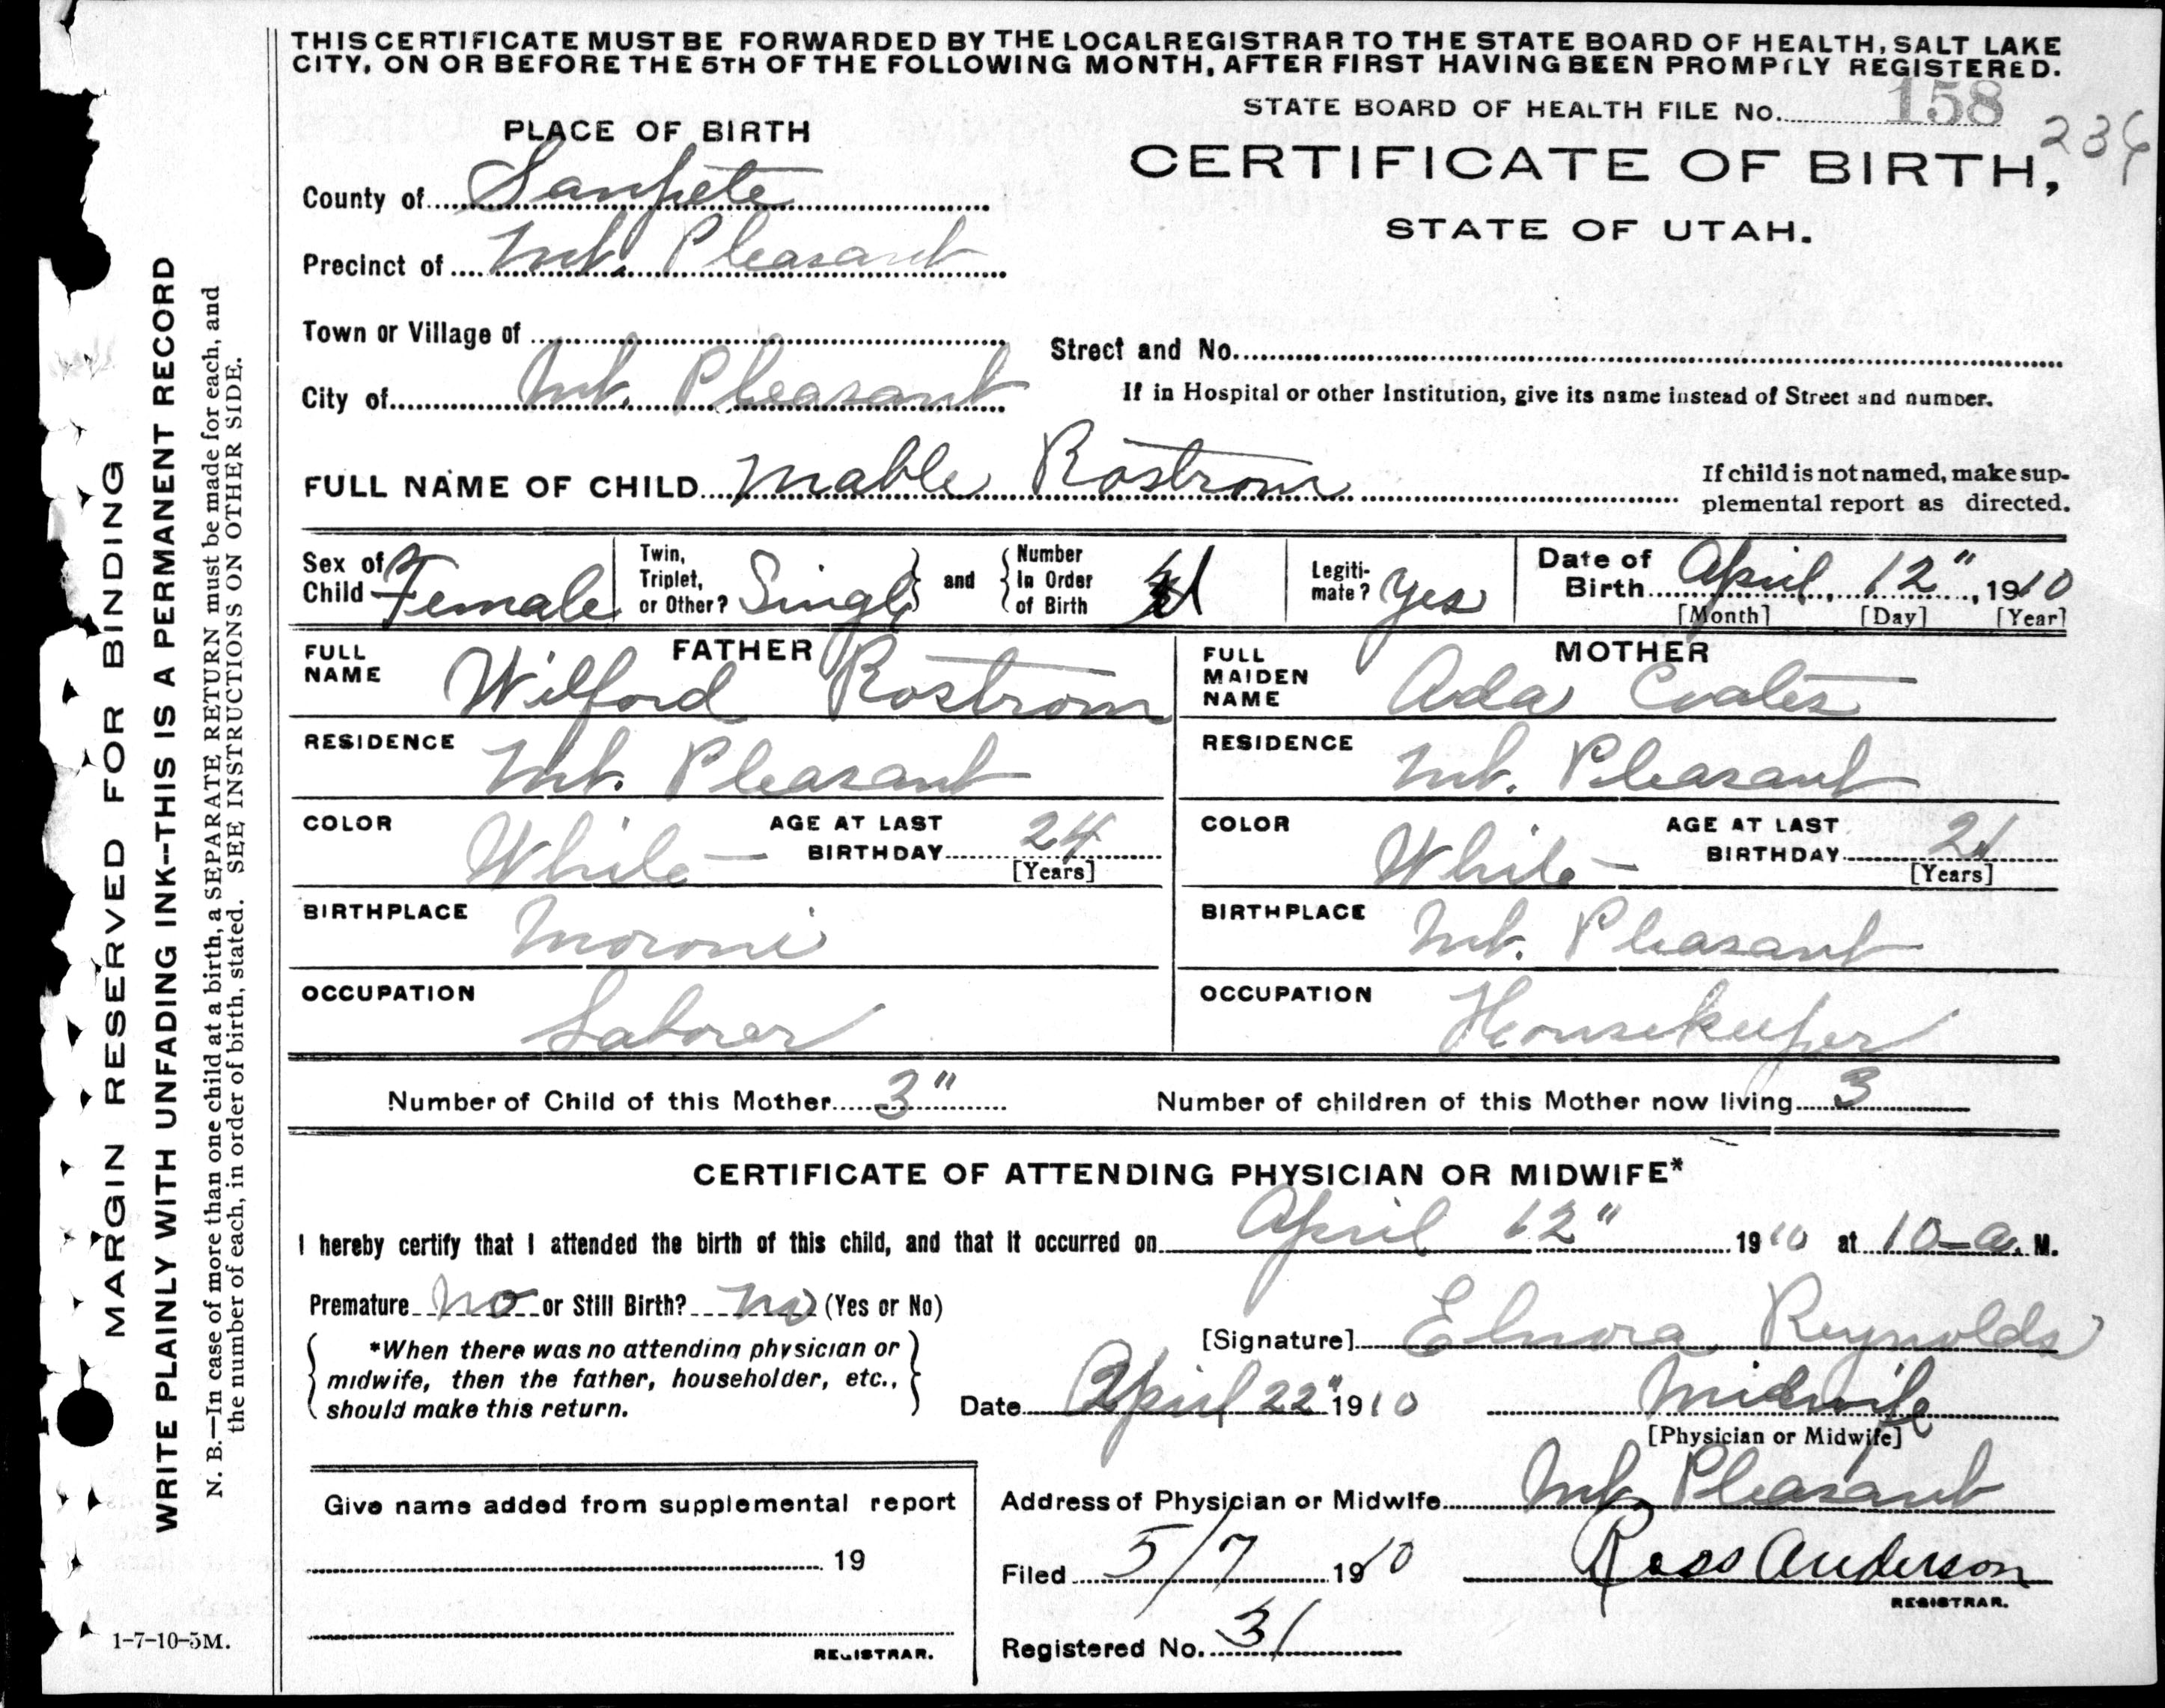 THIS CERTIFICATE MUST BE FORWARDED BY THE LOCAL REGISTRAR TO THE STATE BOARD OF HEALTH, SALT LAKE
CITY, ON OR BEFORE THE 5TH OF THE FOLLOWING MONTH, AFTER FIRST HAVING BEEN PROMPTLY REGISTERED.
STATE BOARD OF HEALTH FILE No. 158
236
PLACE OF BIRTH
CERTIFICATE OF BIRTH,
STATE OF UTAH.
County of Sanpete
Precinct of Mt. Pleasant
Town or Village of
Street and No.
City of Mt. Pleasant
If in Hospital or other Institution, give its name instead of Street and number.
FULL NAME OF CHILD Mable Rostrom
If child is not named, make sup-
plemental report as directed.
Sex of Child Female
Twin, Triplet, or Other? Singl and Number In Order of Birth
Legiti-mate? Yes
Date of Birth April, 12", 1910
[Month] [Day] [Year]
FATHER
FULL NAME Wilford Rostrom
RESIDENCE Mt. Pleasant
COLOR White AGE AT LAST BIRTHDAY 24
[Years]
BIRTHPLACE Moroni
OCCUPATION Laborer
MOTHER
FULL MAIDEN NAME Ada Coates
RESIDENCE Mt. Pleasant
COLOR White AGE AT LAST BIRTHDAY 21
[Years]
BIRTHPLACE Mt. Pleasant
OCCUPATION Housekeeper
Number of Child of this Mother 3" Number of children of this Mother now living 3
CERTIFICATE OF ATTENDING PHYSICIAN OR MIDWIFE*
I hereby certify that I attended the birth of this child, and that it occurred on April 12" 1910 at 10-a. M.
Premature no or Still Birth? no (Yes or No)
*When there was no attending physician or
midwife, then the father, householder, etc.,
should make this return.
[Signature] Elnora Reynolds
Date April 22" 1910 Midwife
[Physician or Midwife]
Address of Physician or Midwife Mt. Pleasant
Give name added from supplemental report
19
REGISTRAR.
Filed 5/7 1910 Ross Anderson
REGISTRAR.
Registered No. 31
MARGIN RESERVED FOR BINDING
WRITE PLAINLY WITH UNFADING INK--THIS IS A PERMANENT RECORD
N. B.—In case of more than one child at a birth, a SEPARATE RETURN must be made for each, and
the number of each, in order of birth, stated. SEE INSTRUCTIONS ON OTHER SIDE.
1-7-10-5M.